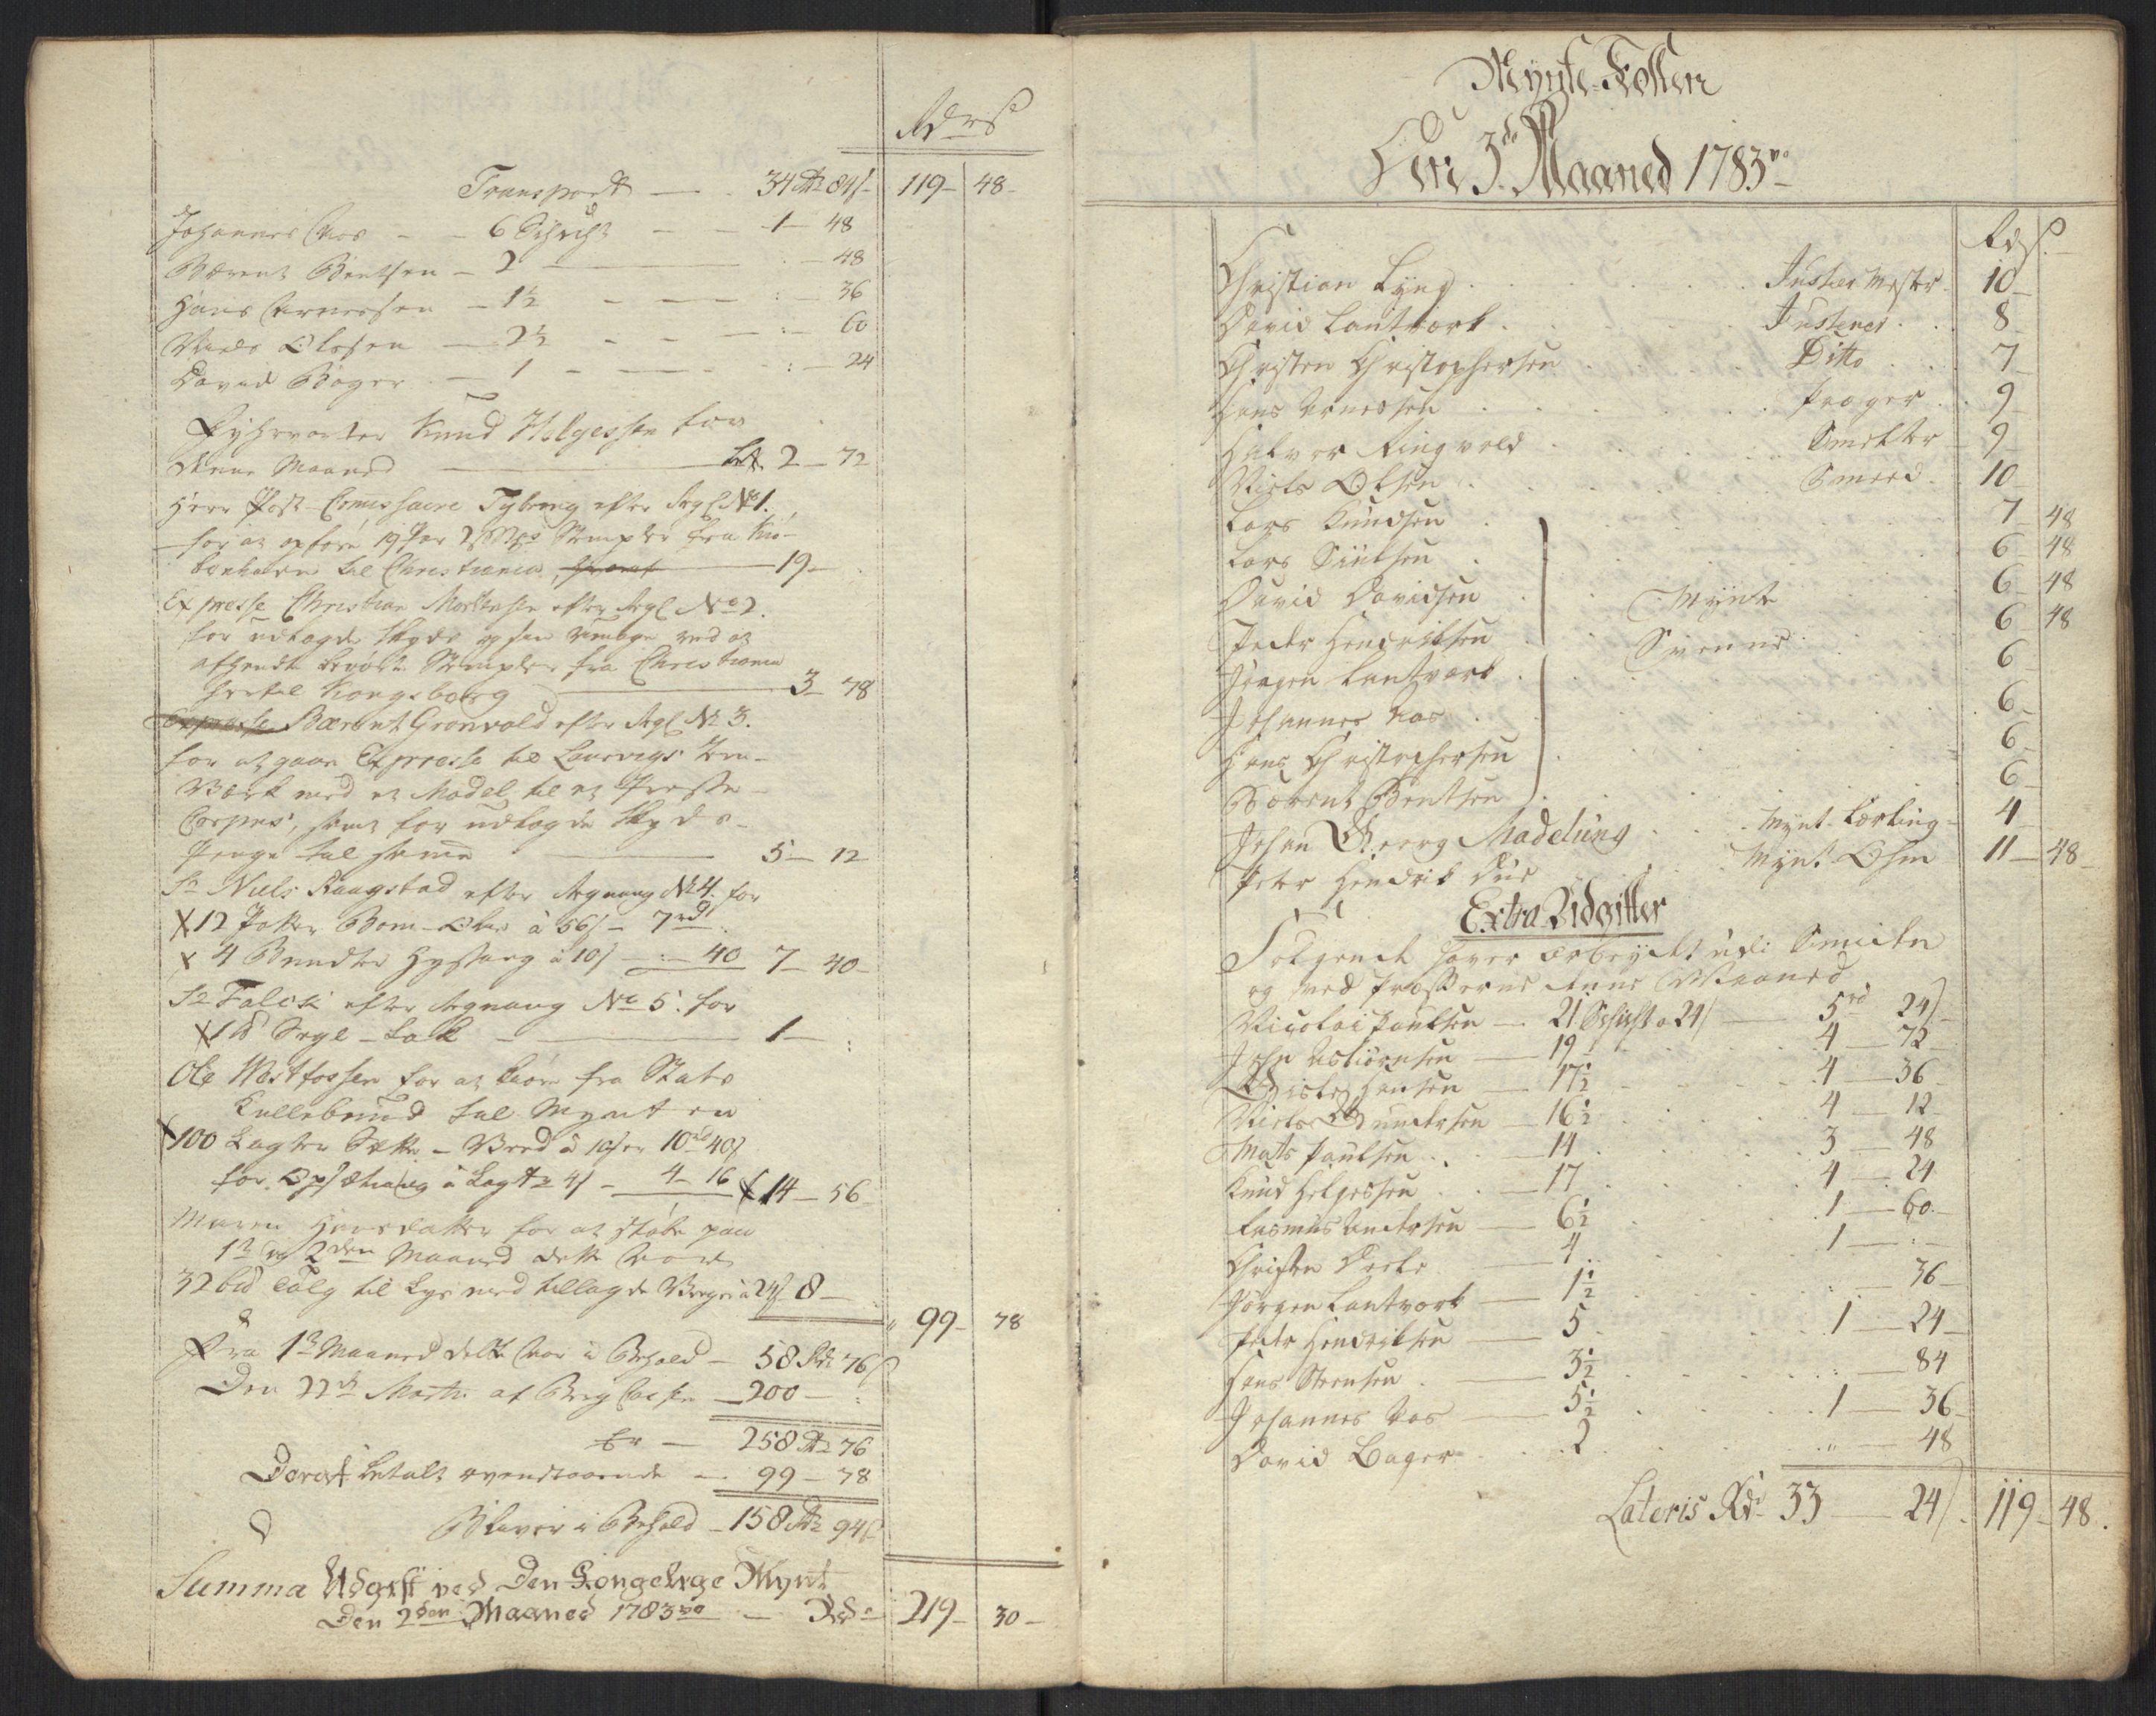 Rdr s
Transport — 34 Rdr 84 s 119 — 48 —
Johannes Aas — 6 Schicht — 1 — 48
Bærent Bentsen — 2 — : — 48
Hans Arnessen — 1½ — : — 36
Niels Olssen — 2½ — : — 60
David Bager — 1 — : — 24
Fyhrvarter Knud Helgessen for
denne Maaned — 2 — 72
Herr Post-Comissaire Tyberg efter Regl No 1.
for at opføre 19 Par 2 s Stempler fra Kiø-
benhavn til Christiania — 19 —
Expresse Christian Mortensen efter Regl No 2.
for udlagde Skyds og sin Umage ved at
afhendte Stempler fra Christiania
hertil Kongsberg — 3 — 78
Expresse Bærent Grønvold efter Regl No 3.
for at gaae Expresse til Laurvigs Jern-
Værk med et Model til et Presse-
Corpus, samt for udlagde Skyds-
Penge til samme — 5 — 12
Sr Niels Raagstad efter Regning No 4. for
12 Potter Bom-Olie à 56 s — 7 rd
4 Bundter à 10 s — : — 40 7 — 40 —
Sr Falck efter Regning No 5. for
1 ℔ Segl-Lak — 1 — :
Ole Westfossen for at kiøre fra Stats
Kullebund til Mynten
100 Lagter Sætte-Veed à 10 s er 10 rd 40 s
for Opsætning à Lagt 4 s — 4 — 16 14 — 56
Maren Hansdatter for at støbe paa
1te og 2den Maaned dette Aar
32 Talg til Lys med tillagde Væger à 24 s 8 —
99 — 78
Fra 1te Maaned dette Aar i Behold — 58 Rdr 76 s
Den 22de Martii af Berg Cassen — 200 — :
Er — 258 Rdr 76
Deraf betalt ovenstaaende — 99 — 78
Bliver i Behold — 158 Rdr 94 s
Summa Udgift ved Den Kongelige Mynt
Den 2den Maaned 1783 — Rdr 219 — 30 —
Mynte-Folken
Den 3de Maaned 1783
Rd s
Christian Lyng Justeer Mester 10 —
David Lantvark Justerer 8
Christen Christophersen Ditto 7
Hans Arnessen Præger 9
Halvor Ringvold Smelter 9
Niels Olsen Smeed 10
Lars Knudsen 7 48
Lars Siulsen 6 48
David Davidsen 6 48
Peder Hendriksen Mynte 6 48
Jørgen Lantvark Svenne 6
Johannes Aas 6
Hans Christophersen 6
Bærent Bentsen 6
Johan Georg Madelung Mynt-Lærling 4
Peter Hendrik Due Mynt-Ohm 11 — 48
Extra Udgifter
Følgende haver arbeydet udi Smitten
og ved Presserne denne Maaned
Nicolai Paulsen — 21 Schicht a 24 s — 5 rd 24 s
John Asbiørnsen — 19 4 — 72
Hansen — 17½ 4 — 36
Niels Gundersen — 16½ 4 — 12
Mats Paulsen — 14 3 — 48
Knud Helgessen — 17 4 — 24
Rasmus Andersen — 6½ 1 — 60
Christen — 4 1 — :
Jørgen Lantvark — 1½ : — 36
Peder Hendriksen — 5 1 — 24
Hans Steensen — 3½ : — 84
Johannes Aas — 5½ 1 — 36
David Bager 2 " — 48
Lateris Rdr 33 — 24 s 119 — 48